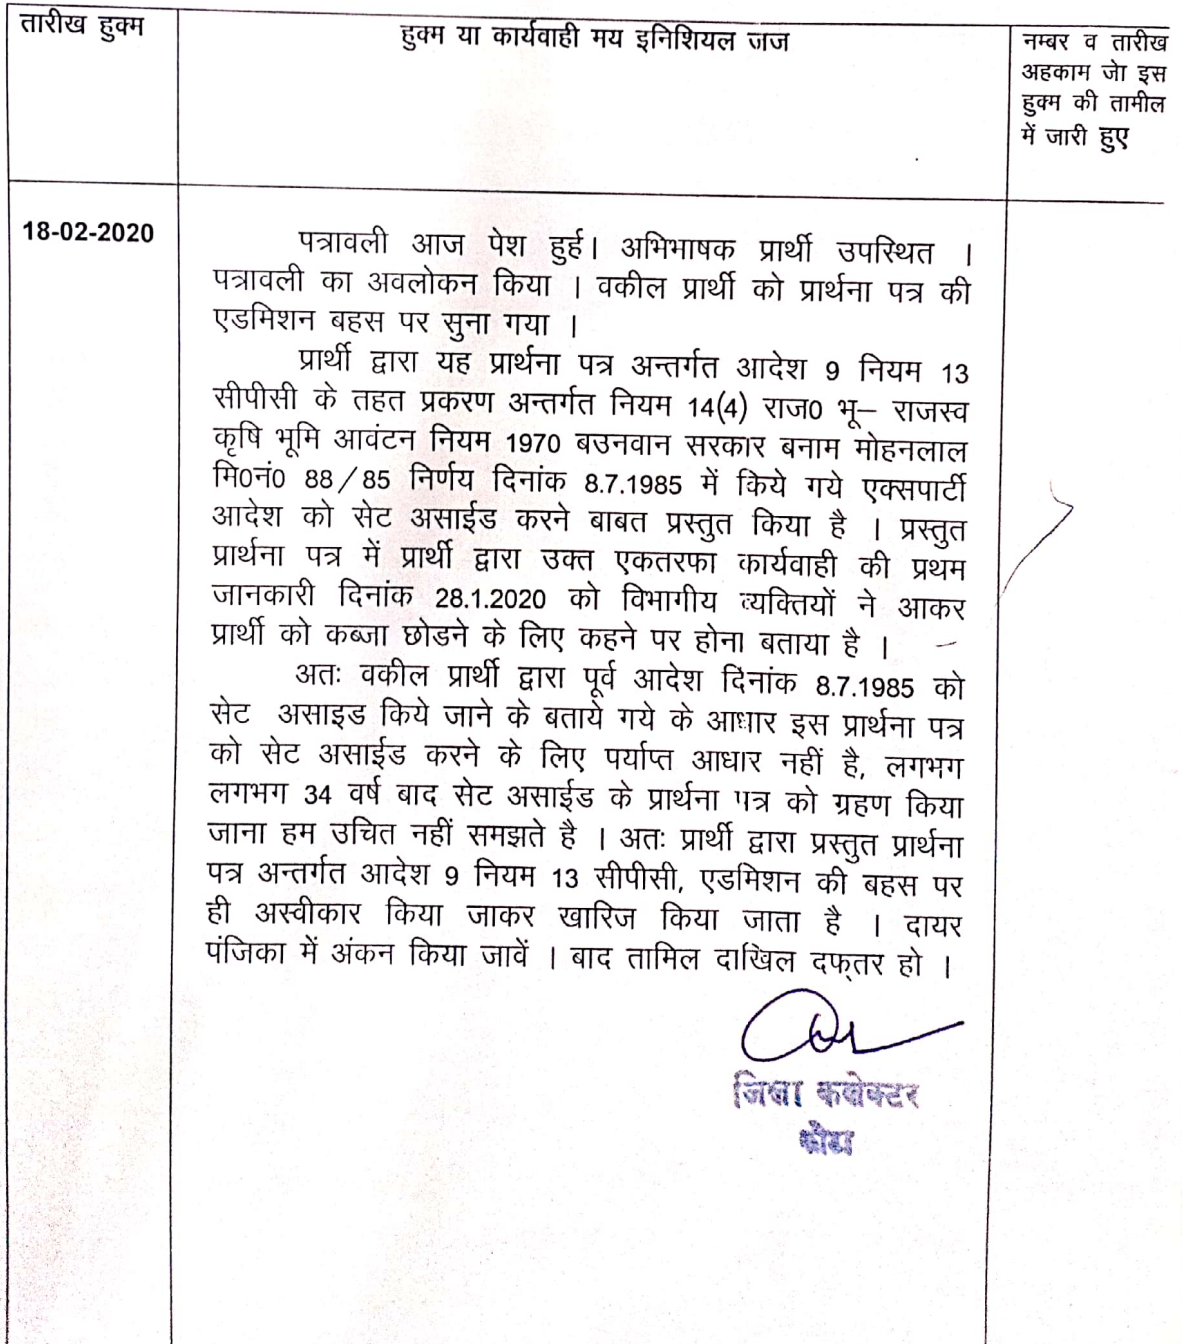 तारीख हुक्म
हुक्म या कार्यवाही मय इनिशियल जज
नम्बर व तारीख
अहकाम जेा इस
हुक्म की तामील
में जारी हुए
18-02-2020
पत्रावली आज पेश हुई। अभिभाषक प्रार्थी उपस्थित ।
पत्रावली का अवलोकन किया । वकील प्रार्थी को प्रार्थना पत्र की
एडमिशन बहस पर सुना गया ।
प्रार्थी द्वारा यह प्रार्थना पत्र अन्तर्गत आदेश 9 नियम 13
सीपीसी के तहत प्रकरण अन्तर्गत नियम 14(4) राज0 भू– राजस्व
कृषि भूमि आवंटन नियम 1970 बउनवान सरकार बनाम मोहनलाल
मि0नं0 88/85 निर्णय दिनांक 8.7.1985 में किये गये एक्सपार्टी
आदेश को सेट असाईड करने बाबत प्रस्तुत किया है । प्रस्तुत
प्रार्थना पत्र में प्रार्थी द्वारा उक्त एकतरफा कार्यवाही की प्रथम
जानकारी दिनांक 28.1.2020 को विभागीय व्यक्तियों ने आकर
प्रार्थी को कब्जा छोडने के लिए कहने पर होना बताया है ।
अतः वकील प्रार्थी द्वारा पूर्व आदेश दिनांक 8.7.1985 को
सेट असाइड किये जाने के बताये गये के आधार इस प्रार्थना पत्र
को सेट असाईड करने के लिए पर्याप्त आधार नहीं है, लगभग
लगभग 34 वर्ष बाद सेट असाईड के प्रार्थना पत्र को ग्रहण किया
जाना हम उचित नहीं समझते है । अतः प्रार्थी द्वारा प्रस्तुत प्रार्थना
पत्र अन्तर्गत आदेश 9 नियम 13 सीपीसी, एडमिशन की बहस पर
ही अस्वीकार किया जाकर खारिज किया जाता है । दायर
पंजिका में अंकन किया जावें । बाद तामिल दाखिल दफ्तर हो ।
जिला कलेक्टर
कोटा